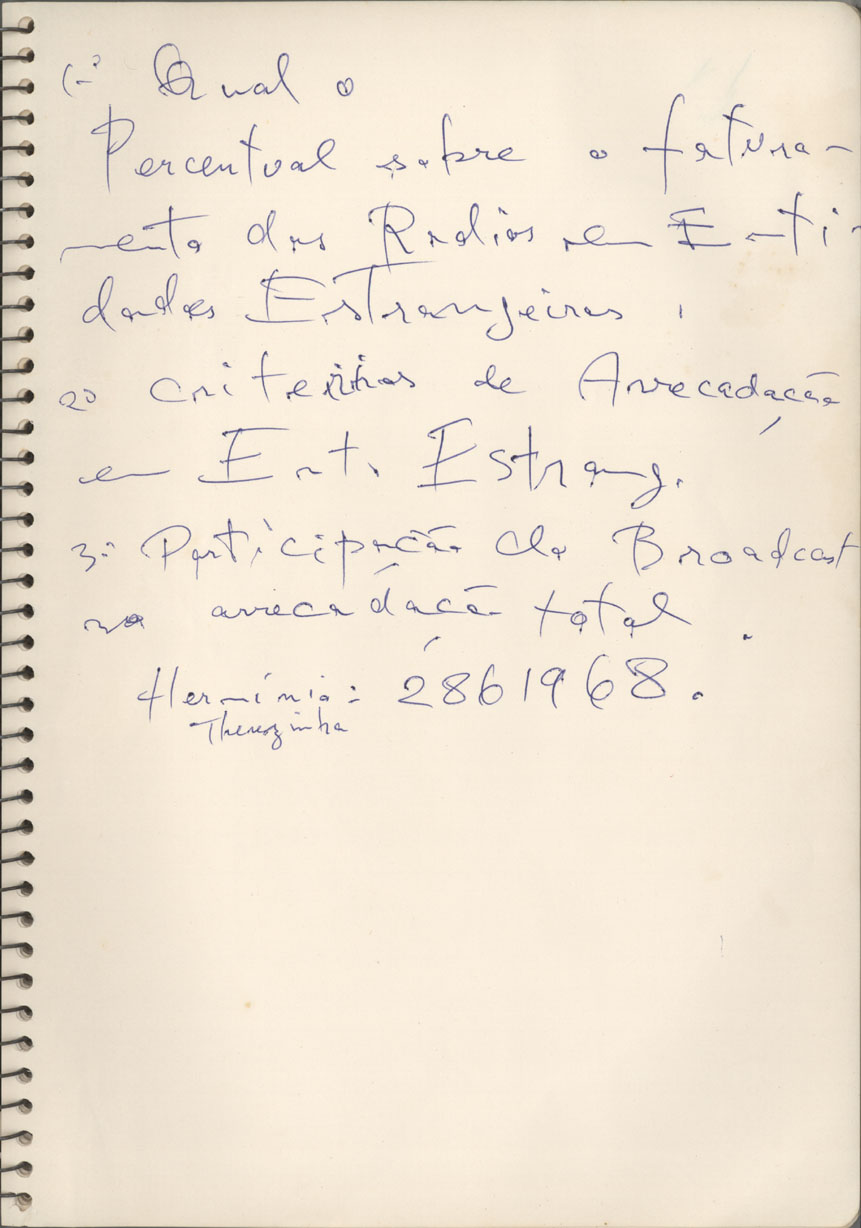 1-º Qual o
Percentual sobre o fatura-
mento das Radios em Enti-
dades Estrangeiras.
2º Criterios de Arrecadação
em Ent. Estrang.
3-º Participação do Broadcast
na arrecadação total.
Hermínia: 2861968.
Therezinha